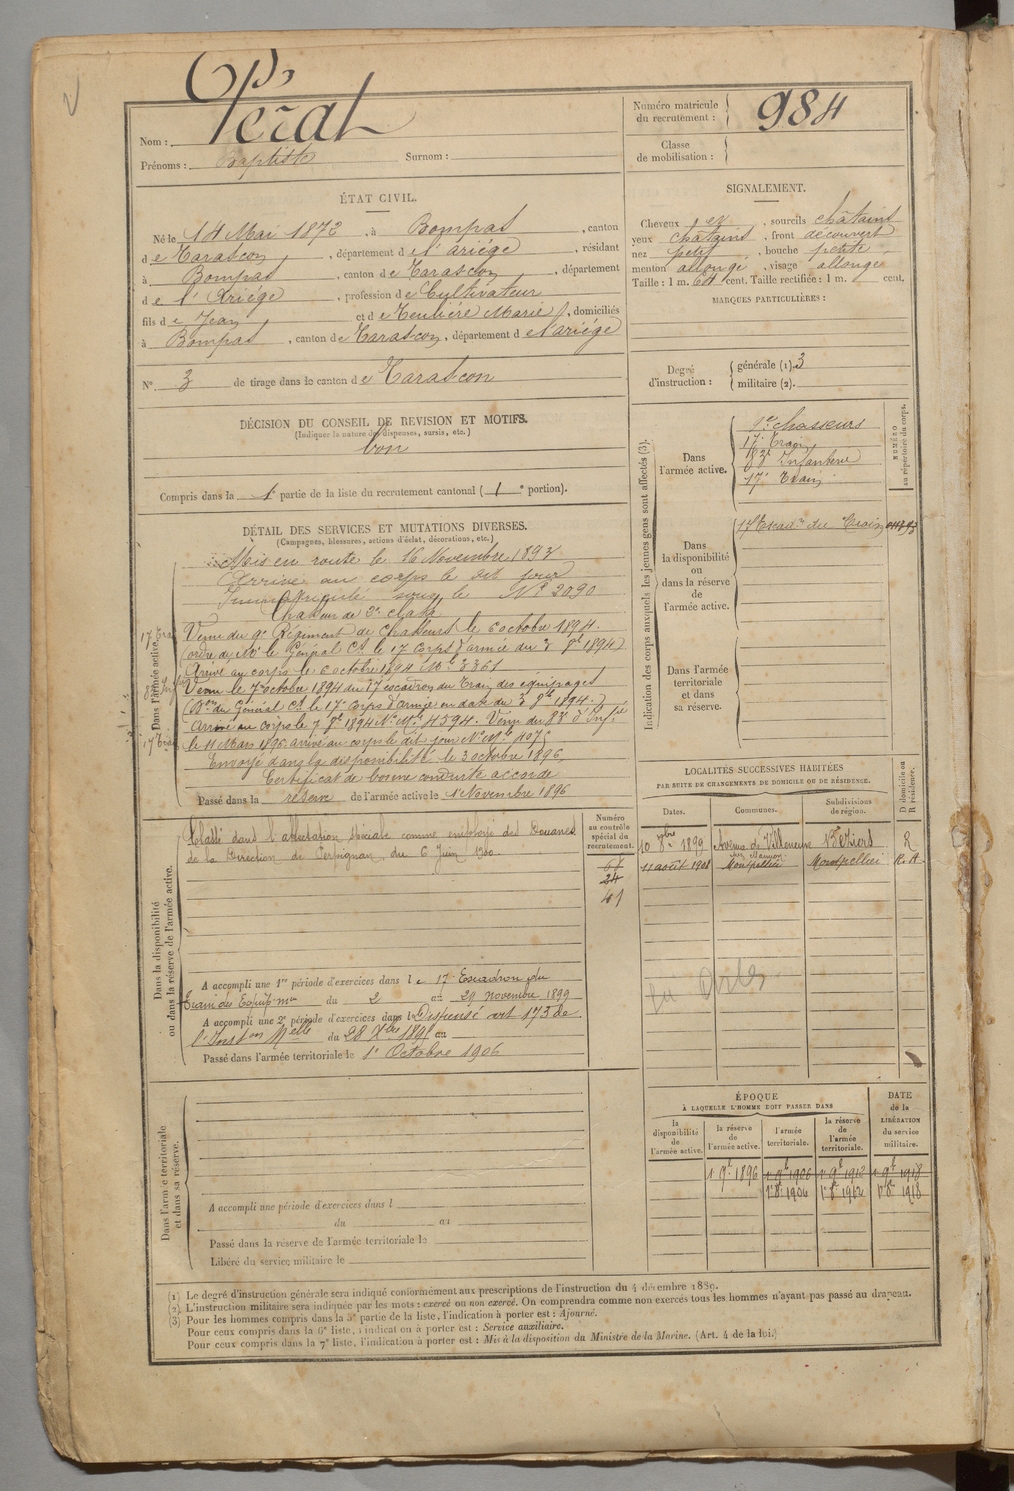 Nom : Pérat
Prénoms : Baptiste Surnom :
Numéro matricule
du recrutement : 984
Classe
de mobilisation :
ÉTAT CIVIL.
Né le 14 Mai 1872, à Bompas, canton
de Tarascon, département de l'ariége, résidant
à Bompas, canton de Tarascon, département
de l'Ariége, profession de Cultivateur
fils de Jean et de Teulière Marie, domiciliés
à Bompas, canton de Tarascon, département de l'ariége
N° 3 de tirage dans le canton de Tarascon
SIGNALEMENT.
Cheveux et, sourcils châtains
yeux châtains, front découvert
nez petit, bouche petite
menton allongé, visage allongé
Taille : 1 m. 64 cent. Taille rectifiée : 1 m. cent.
MARQUES PARTICULIÈRES :
Degré
d'instruction :
générale (1). 3
militaire (2).
DÉCISION DU CONSEIL DE REVISION ET MOTIFS.
(Indiquer la nature des dispenses, sursis, etc.)
bon
Compris dans la 1e partie de la liste du recrutement cantonal (1e portion).
DÉTAIL DES SERVICES ET MUTATIONS DIVERSES.
(Campagnes, blessures, actions d'éclat, décorations, etc.)
Dans l'armée active.
Mis en route le 16 Novembre 1893
Arrivé au corps le dit jour
Immatriculé sous le N° 2090
Chasseur de 2e classe
Venu du 9e Régiment de Chasseurs le 6 octobre 1894.
(ordre de Mr le Général Ct le 17 Corps d'armée du 3 8bre 1894)
Arrivé au corps le 6 octobre 1894 No Mle 3361
Venu le 7 octobre 1894 du 17 escadron du Train des équipages
du Général Ct le 17e Corps d'armée en date du 3 8bre 1894.
Arrivé au corps le 7 8bre 1894 No Mle 4594. Venu du 83e d'Infie
le 11 Mars 1896 arrivé au corps le dit jour No Mle 4075
Envoyé dans la disponibilité le 3 octobre 1896,
Certificat de bonne conduite accordé
Passé dans la réserve de l'armée active le 1er Novembre 1896
Indication des corps auxquels les jeunes gens sont affectés (3).
NUMÉRO
au répertoire du corps.
Dans
l'armée active.
9e Chasseurs
17e Train
83e Infanterie
17e Train
Dans
la disponibilité
ou
dans la réserve
de
l'armée active.
17 Escadn du Train
Dans l'armée
territoriale
et dans
sa réserve.
LOCALITÉS SUCCESSIVES HABITÉES
PAR SUITE DE CHANGEMENTS DE DOMICILE OU DE RÉSIDENCE.
D domicile ou
R résidence.
Dates. Communes. Subdivisions
de région.
1899 Avenue de Villeneuve Béziers R
11 août 1901 Montpellier Montpellier R. A
Dans la disponibilité
ou dans la réserve de l'armée active.
Classé dans l'affectation spéciale comme employé des Douanes
de la Direction de Perpignan, du 6 Juin 1900.
Numéro
au contrôle
spécial du
recrutement.
34
41
A accompli une 1re période d'exercices dans le 17 Escadron du
Train des Equip. mres du 2 au 29 novembre 1899
A accompli une 2e période d'exercices dans l Dispensé art 173 de
l'Inston Melle du 28 Xbre 1895 au
Passé dans l'armée territoriale le 1er Octobre 1906
ÉPOQUE
À LAQUELLE L'HOMME DOIT PASSER DANS
DATE
de la
LIBÉRATION
du service
militaire.
la
disponibilité
de
l'armée active.
la réserve
de
l'armée active.
l'armée
territoriale.
la réserve
de
l'armée
territoriale.
1 9bre 1896 1 9bre 1906 1 9bre 1912 1 9bre 1918
1er 8bre 1906 1er 8bre 1912 1er 8bre 1918
Dans l'armée territoriale
et dans sa réserve.
A accompli une période d'exercices dans l
du au
Passé dans la réserve de l'armée territoriale le
Libéré du service militaire le
(1) Le degré d'instruction générale sera indiqué conformément aux prescriptions de l'instruction du 4 décembre 1889.
(2) L'instruction militaire sera indiquée par les mots : exercé ou non exercé. On comprendra comme non exercés tous les hommes n'ayant pas passé au drapeau.
(3) Pour les hommes compris dans la 5e partie de la liste, l'indication à porter est : Ajourné.
Pour ceux compris dans la 6e liste, l'indication à porter est : Service auxiliaire.
Pour ceux compris dans la 7e liste, l'indication à porter est : Mis à la disposition du Ministre de la Marine. (Art. 4 de la loi.)